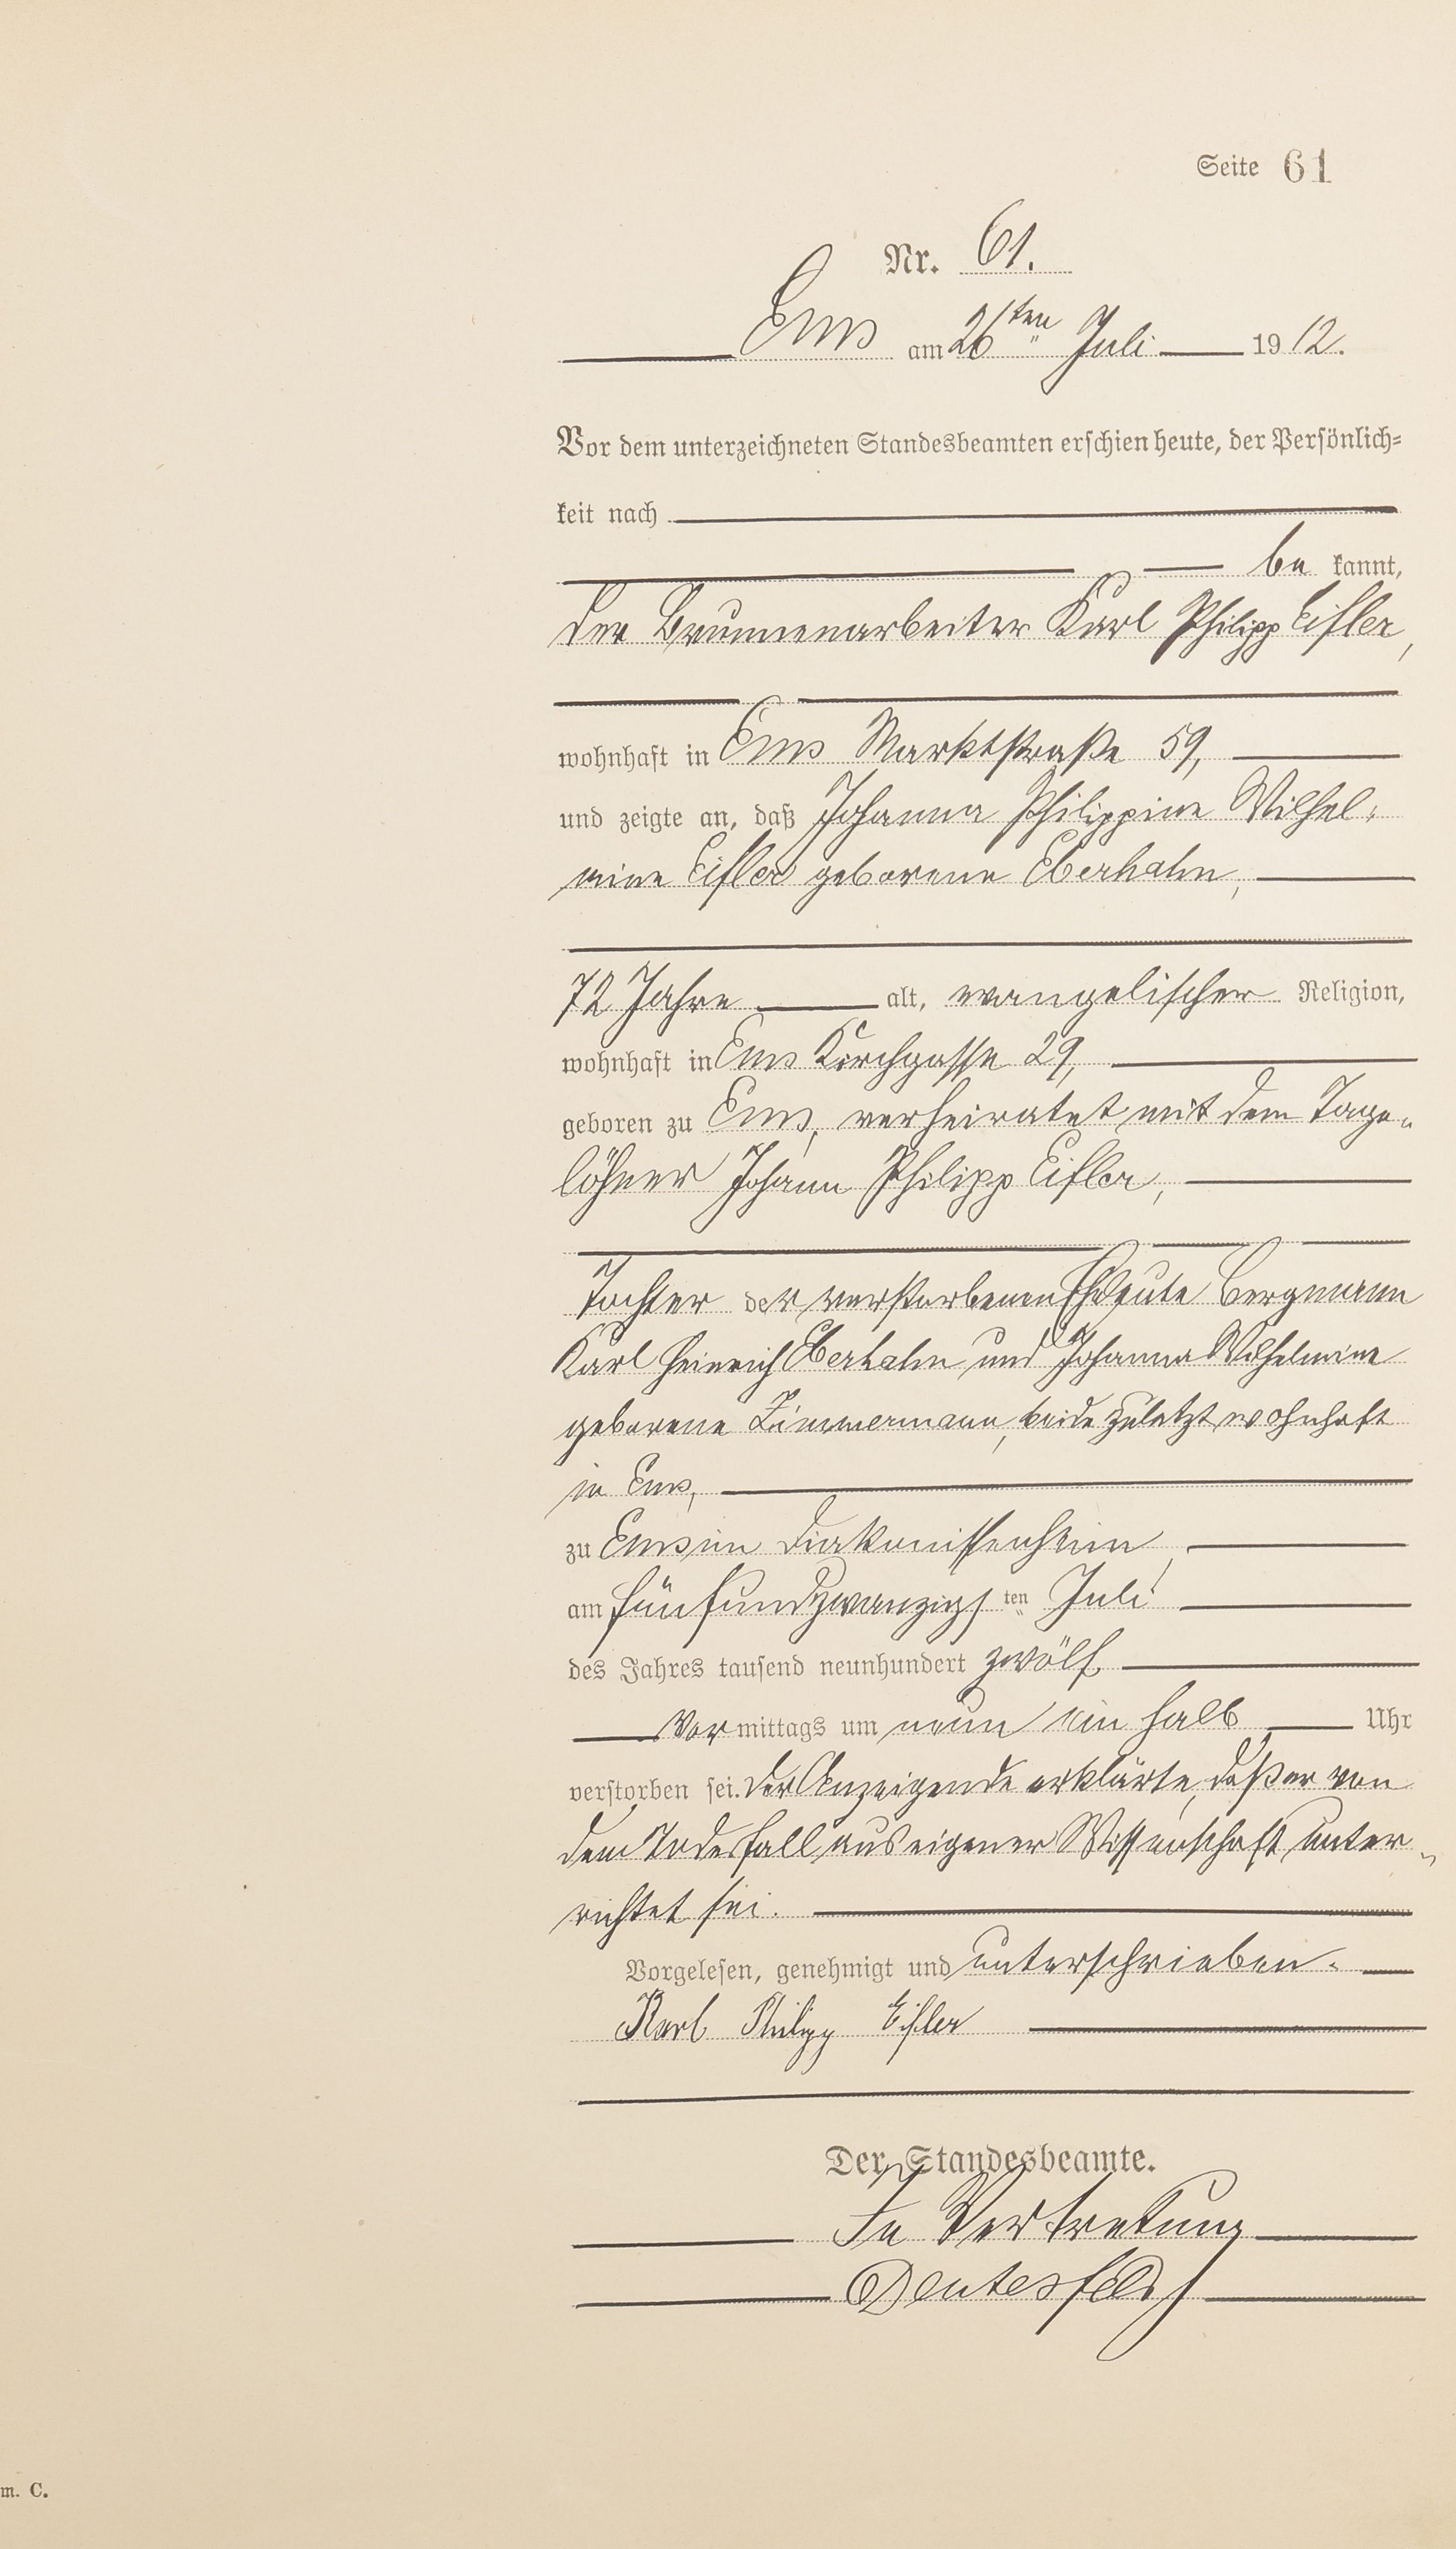 Seite 61
Nr. 61.
Ems am 26ten Juli 1912.
Vor dem unterzeichneten Standesbeamten erschien heute, der Persönlich=
keit nach
be kannt,
der Brunnenarbeiter Karl Philipp Eifler,
wohnhaft in Ems Marktstraße 59,
und zeigte an, daß Johanna Philippine Wilhel-
mine Eifler geborene Eberhahn,
72 Jahre alt, evangelischer Religion,
wohnhaft in Ems Kirchgasse 29,
geboren zu Ems, verheiratet mit dem Tage-
löhner Johann Philipp Eifler,
Tochter der verstorbenen Eheleute Bergmann
Karl Heinrich Eberhahn und Johanna Wilhelmine
geborene Zimmermann, beide zuletzt wohnhaft
in Ems,
zu Ems im Diakonissenheim,
am fünfundzwanzigsten Juli
des Jahres tausend neunhundert zwölf
Vor mittags um neun ein halb Uhr
verstorben sei. Der Anzeigende erklärte, daß er von
dem Todesfall aus eigener Wissenschaft unter-
richtet sei.
Vorgelesen, genehmigt und unterschrieben.
Karl Philipp Eifler
Der Standesbeamte.
In Vertretung
Deutesfeld
m. C.